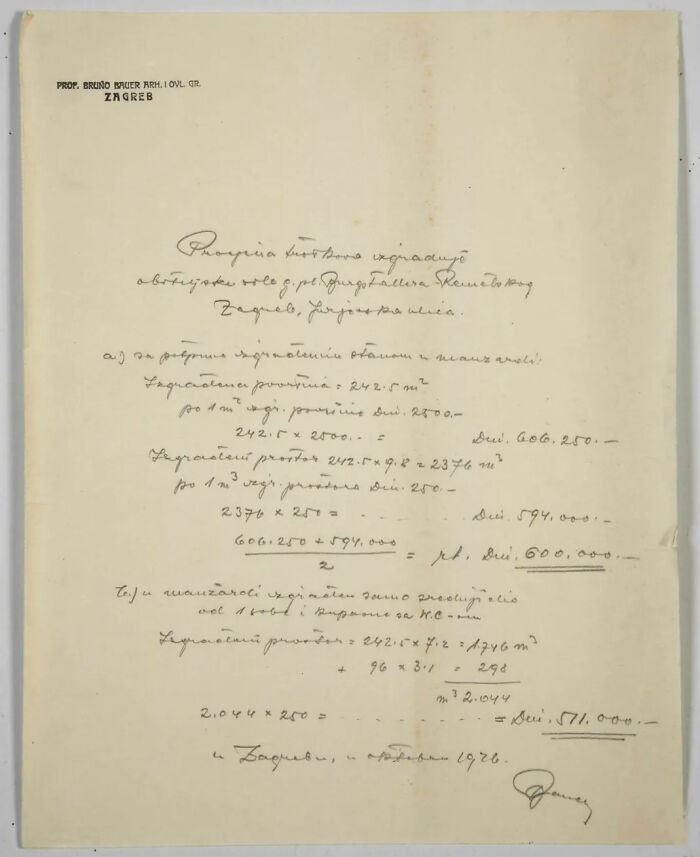 PROF. BRUNO BAUER ARH. I OVL. GR.
ZAGREB
Procjena troškova izgradnje
obiteljske vile g. pl. Burgstallera Remetskog
Zagreb, Jurjevska ulica.
a) sa potpuno izgrađenim stanom u manzardi:
Izgrađena površina = 242.5 m²
po 1 m² izgr. površine Din. 2500.-
242.5 x 2500.- = Din. 606.250.-
Izgrađeni prostor 242.5 x 9.8 = 2376 m³
po 1 m³ izgr. prostora Din. 250.-
2376 x 250 = - - - - Din. 594.000.-
606.250 + 594.000
2
= rt. Din. 600.000.-
b.) u manžardi izgrađen samo srednji dio
od 1 sobe i kupaone sa W.C-om
Izgrađeni prostor = 242.5 x 7.2 = 1.746 m³
+ 96 x 3.1 = 298
m³ 2.044
2.044 x 250 = - - - - - - - - = Din. 511.000.-
u Zagrebu, u oktobru 1926.
Bauer